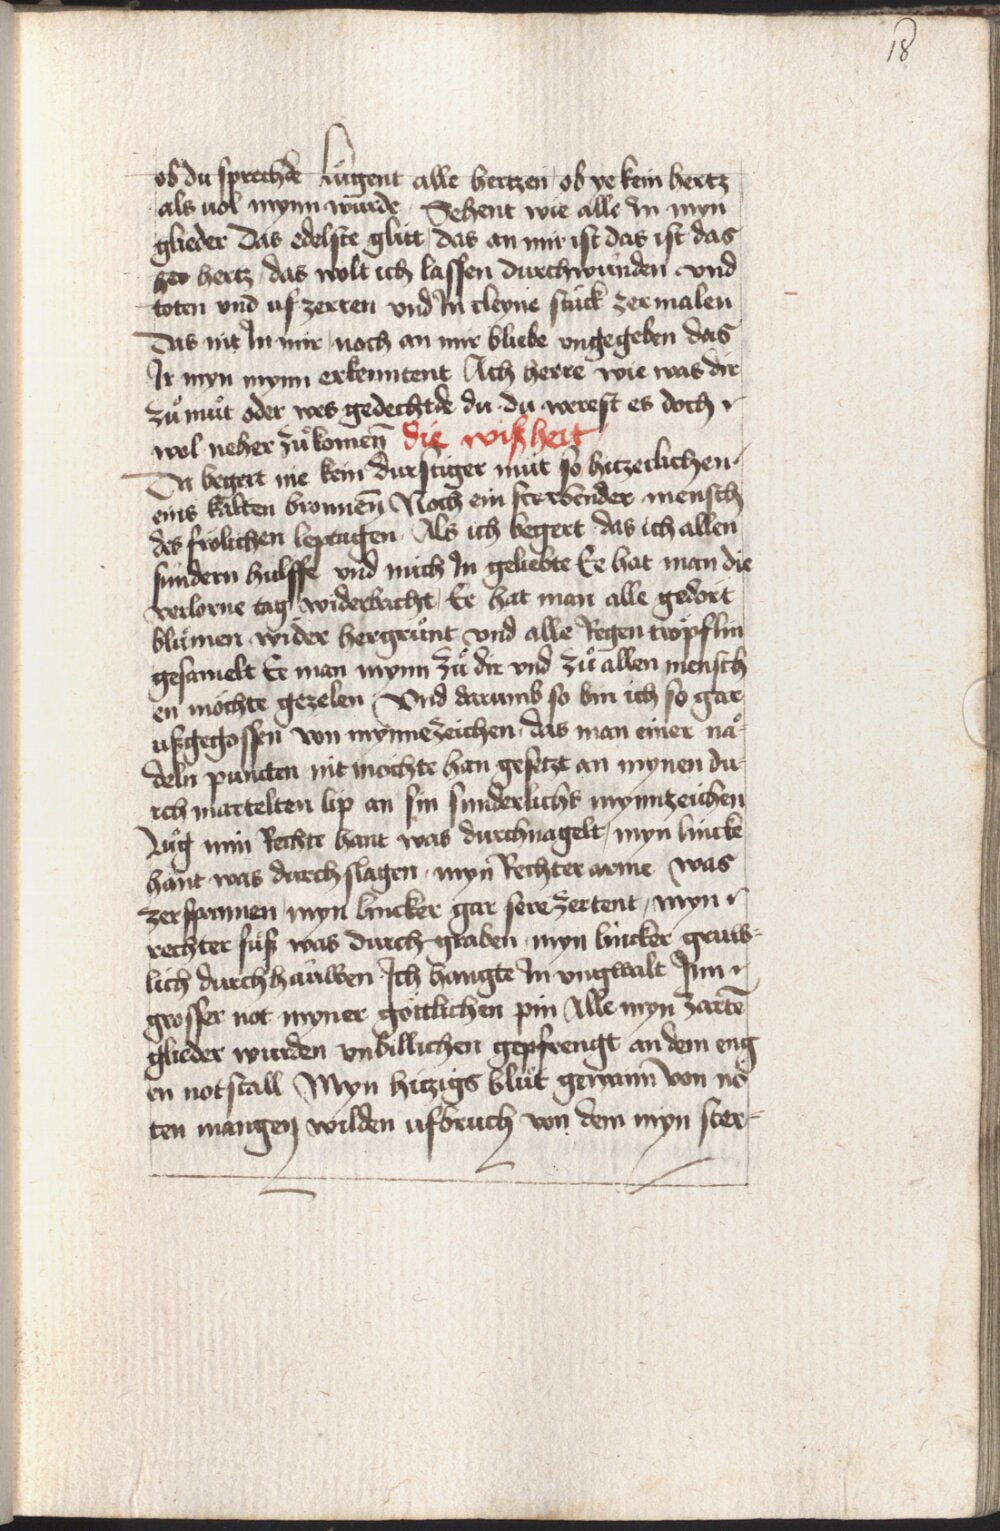 18
ob du sprechde Lůgent alle hertzen ob ye kein hertz
als vol mynn wurde Sehent wie alle In myn
glieder Das edelste glitt das an mir ist das ist das
hertz das wolt ich lassen durchwunden vnd
toten vnd uf zerren vnd In cleyne stuck zermalen
Das nit In mir noch an mir bliebe vngegeben das
Ir myn mynn erkenntent Ach herre wie was dir
zů můt oder wes gedechtde du du werest es doch
wol neher zůkomen̄ die wißheit
Da begert nie kein durstiger můt so hitzeclichen
eins kalten bronnen̄ Noch ein sterbender mensch
des frölichen leptagen Als ich begert das ich allen
sundern hulffe vnd mich In geliebte Ee hat man die
verlorne tag widerbracht Ee hat man alle gedort
blůmen wider hergrůnt vnd alle Regen tröpflin
gesamelt Ee man mynn zů dir vnd zů allen mensch
en mochte gezelen Vnd darumb so bin ich so gar
ußgegossen von mynnezeichen das man einer nå-
deln puncten nit mochte han gesetzt an mynen du-
rch martelten lip an sin sunderlichs mynnzeichen
Lůg min Rechte hant was durchnagelt myn lincke
hant was durch slagen myn Rechter arme was
zerspannen myn lincker gar sere zertent myn
rechter fůß was durch graben myn lincker gruw-
lich durchhauwen Ich hangte In vngwalt Inn
grosser not myner göttlichen pin Alle myn zarte̅
glieder wurden vnbillichen gepfrengt an dem eng
en notstall Myn hitzigs blůt gewann von nö
ten mangen wilden ufbruch von dem myn ster-